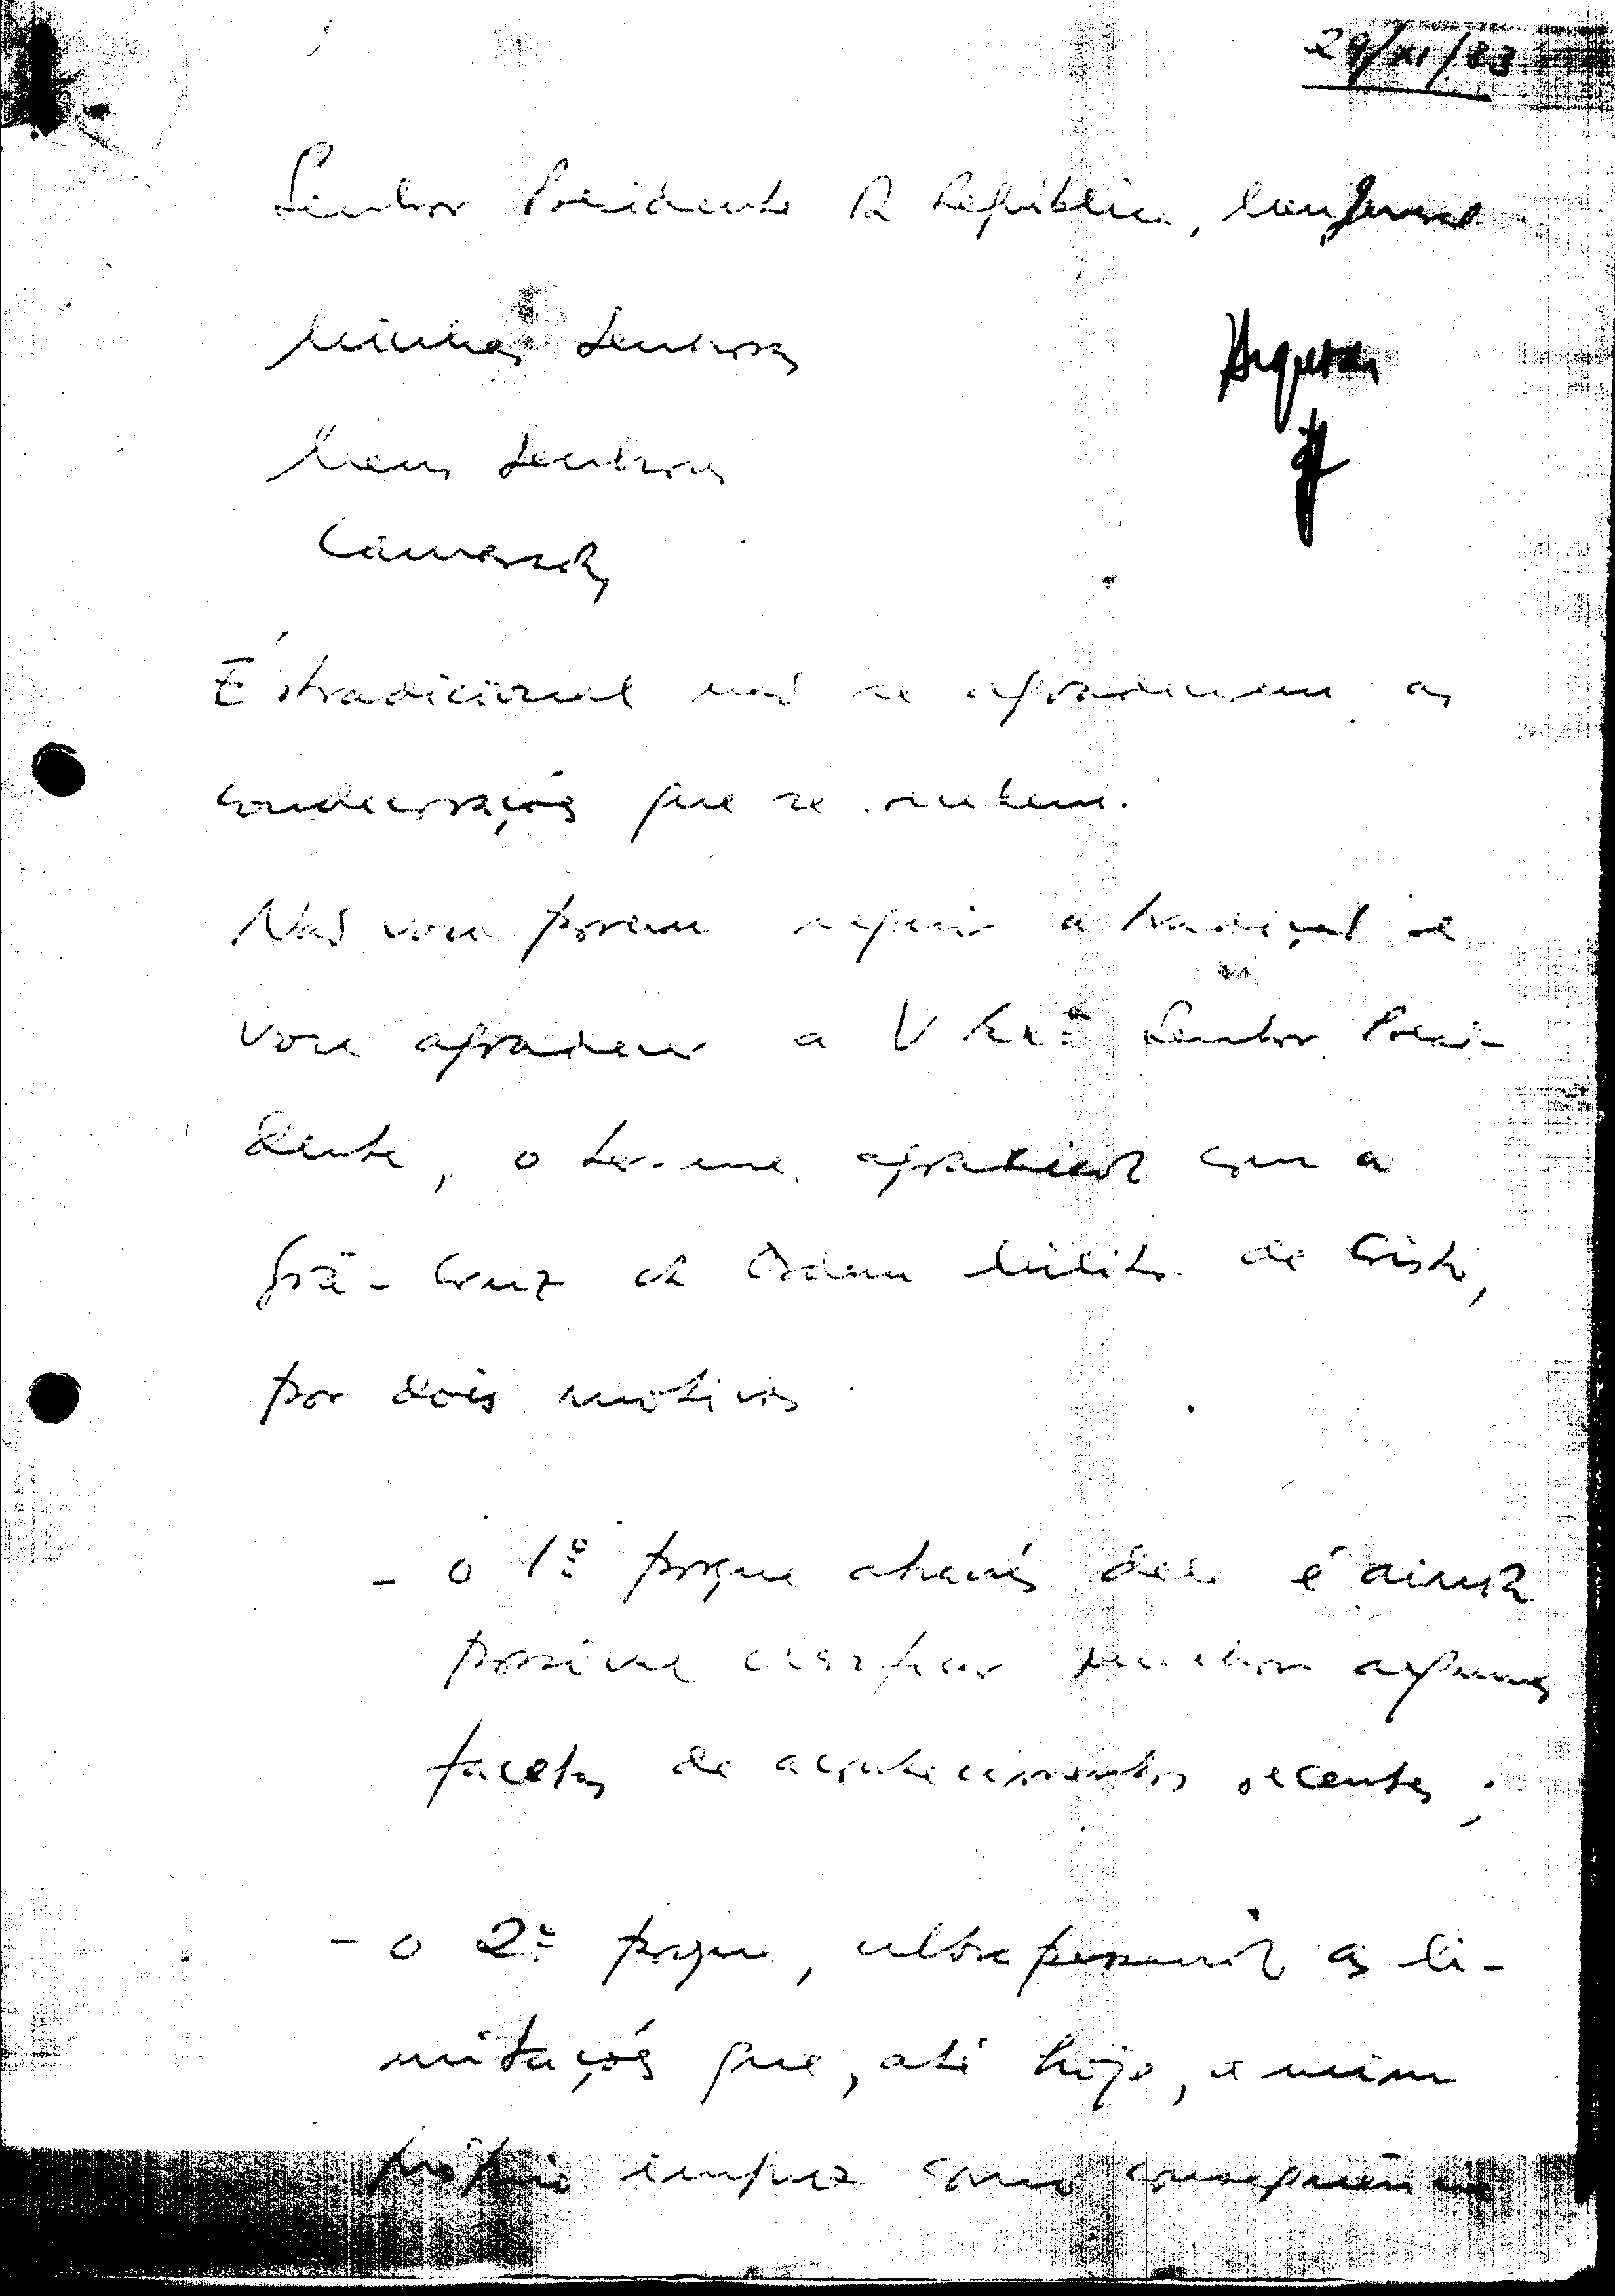 29/XI/83
Senhor Presidente da República,
Minhas Senhoras
Meus Senhores
Camaradas
É tradicional não se agradecerem as
condecorações que se recebem.
Não vou porém seguir a tradição e
vou agradecer a V Exª Senhor Presi-
dente, o ter-me agraciado com a
Grã-Cruz da Ordem Militar de Cristo,
por dois motivos
- o 1º porque através dele é ainda
possível clarificar melhor algumas
facetas de acontecimentos recentes;
- o 2º porque, ultrapassando as li-
mitações que, até hoje, a mim
próprio impuz como consequência